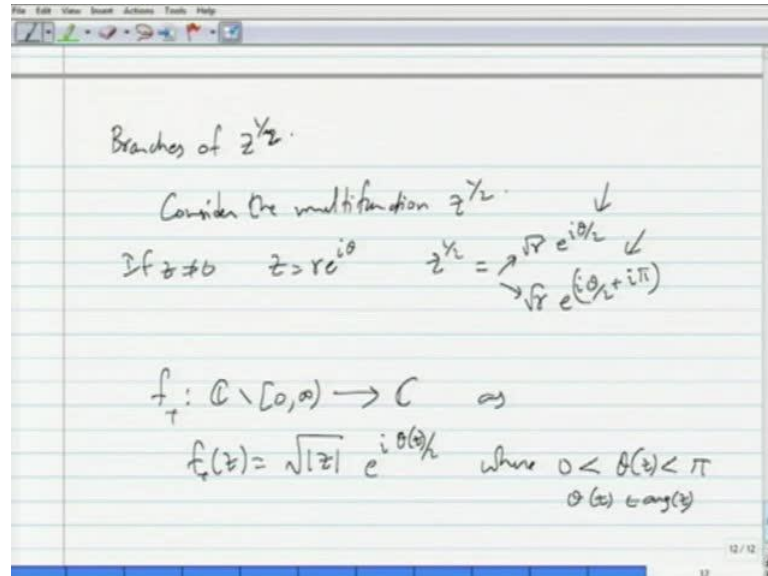 File Edit View Insert Actions Tools Help
Branches of z^{1/2}.
Consider the multifunction z^{1/2}.
If z ≠ 0 z = re^{iθ} z^{1/2} = ↗ √r e^{iθ/2} ↓
↘ √r e^{(iθ/2 + iπ)} ↙
f_+ : ℂ \ [0, ∞) → ℂ as
f_+(z) = √|z| e^{i θ(z)/2} where 0 < θ(z) < π
θ(z) ∈ arg(z)
12 / 12
12